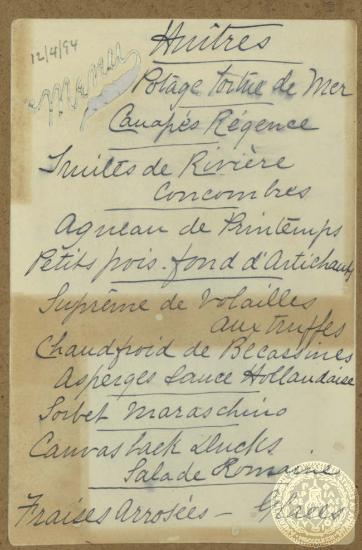 12/4/94
Menu
Huîtres
Potage tortue de Mer
Canapés Régence
Truites de Rivière
Concombres
Agneau de Printemps
Petits pois - fond d'Artichauts
Suprême de Volailles
aux truffes
Chaudfroid de Becassines
Asperges Sauce Hollandaise
Sorbet Maraschino
Canvasback Ducks
Salade Romaine
Fraises Arrosées - Glaces